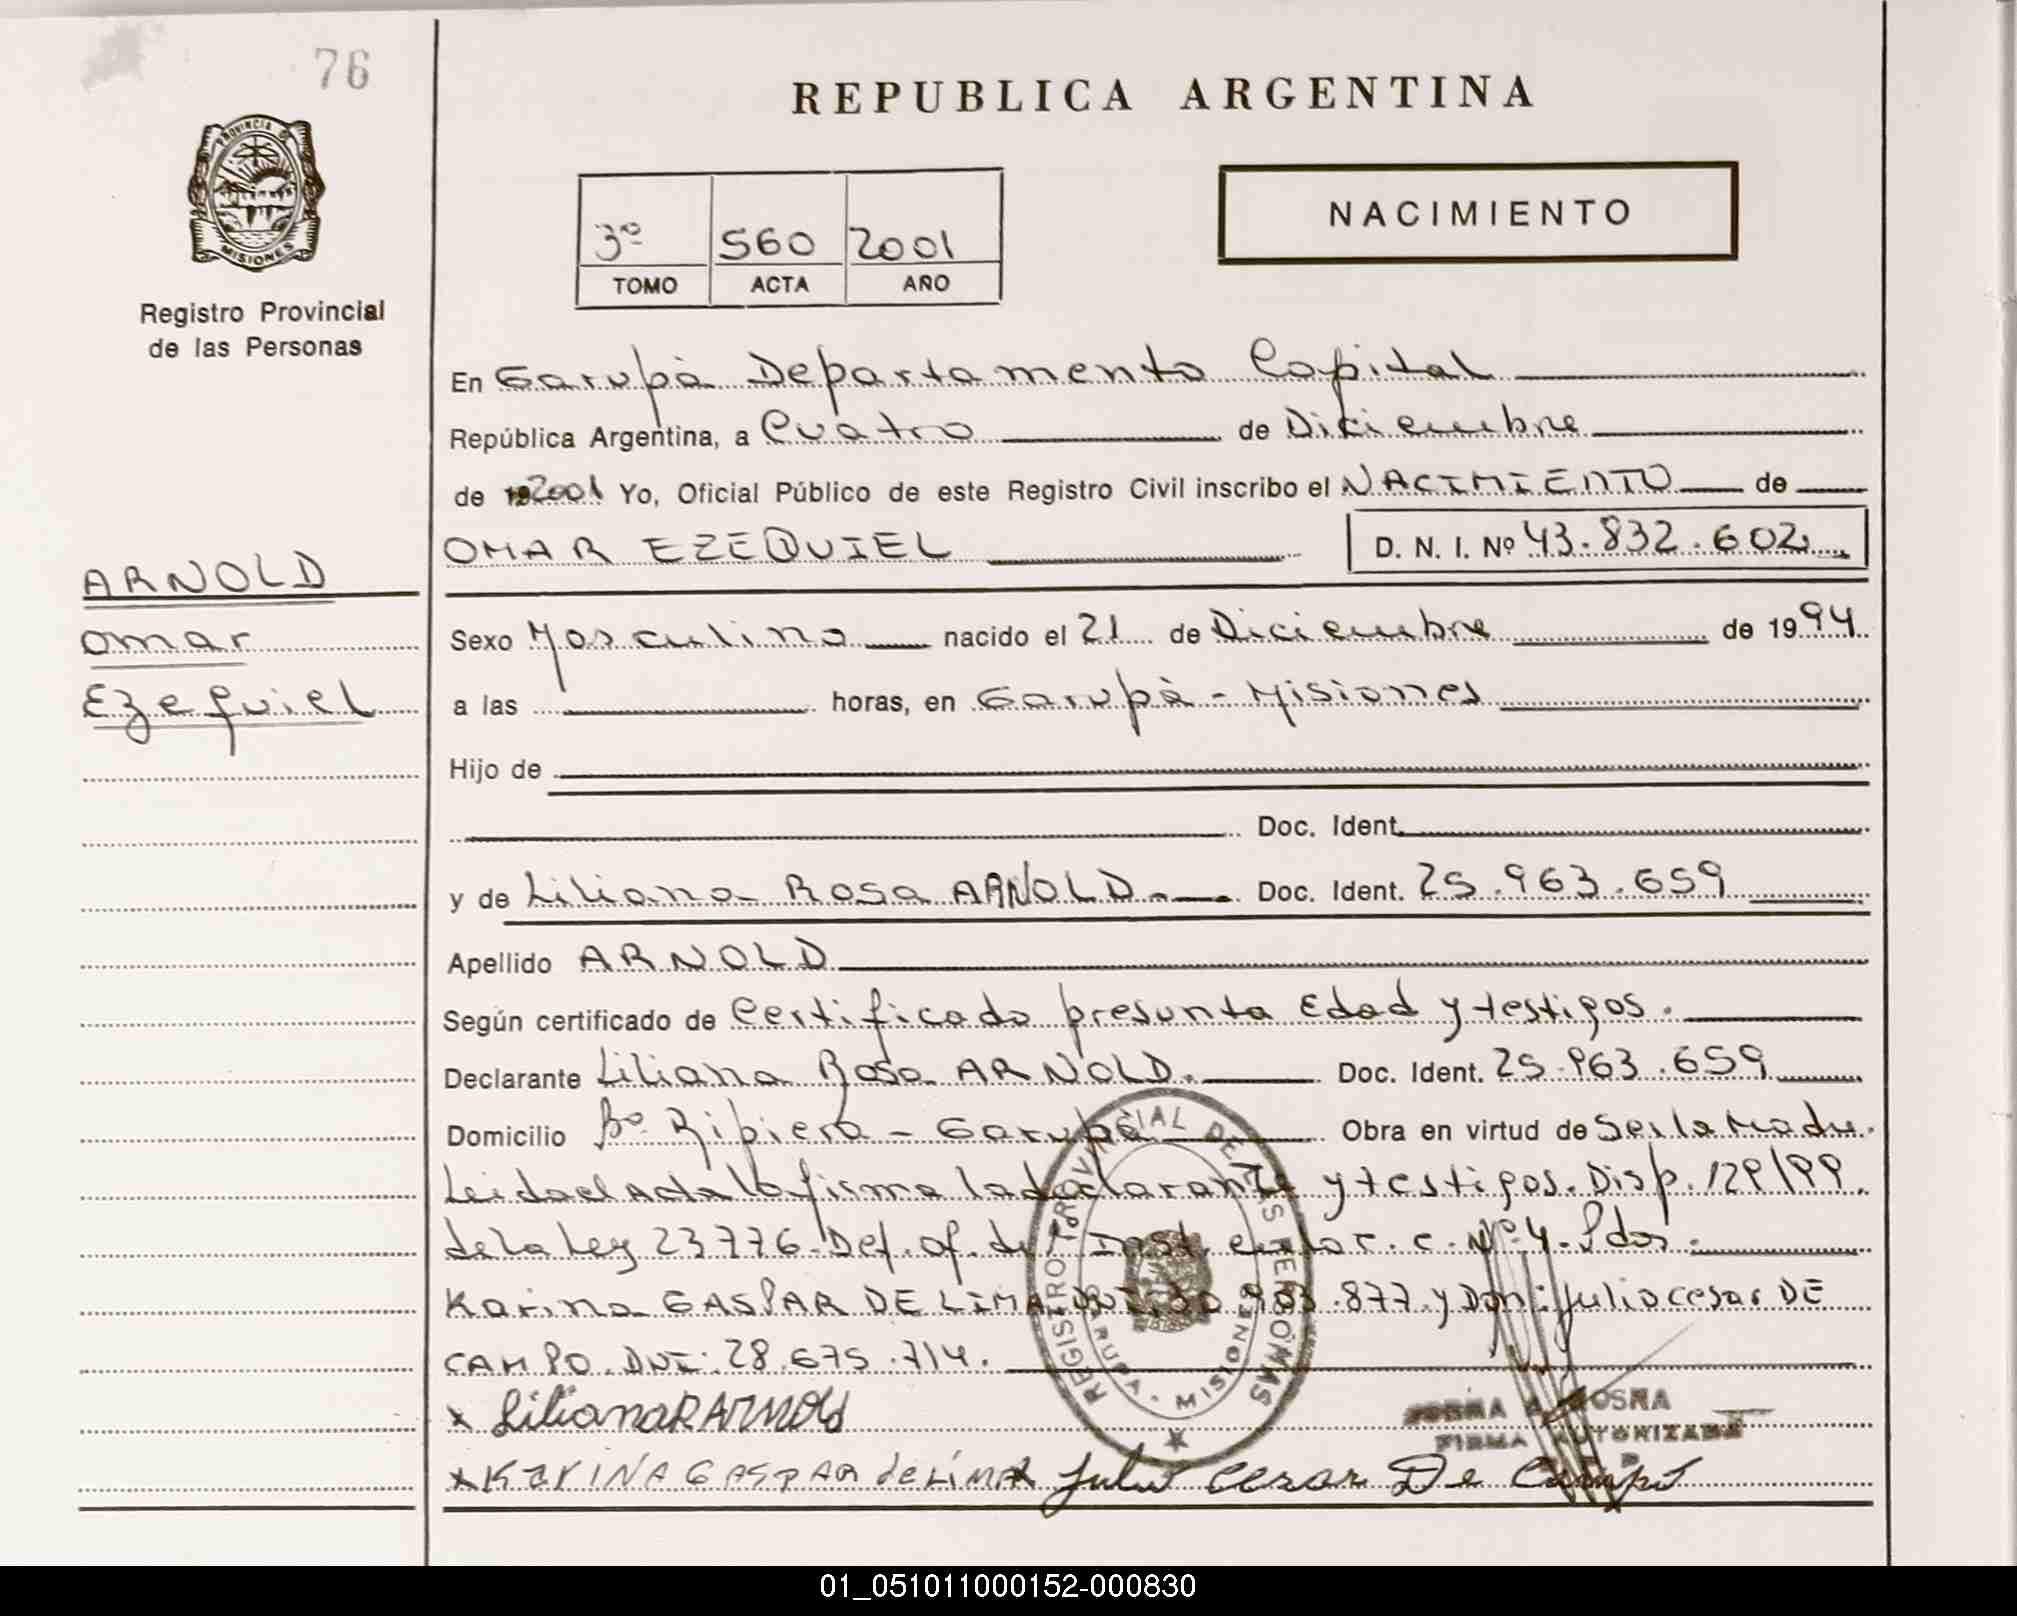 76
REPUBLICA ARGENTINA
PROVINCIA DE
MISIONES
Registro Provincial
de las Personas
NACIMIENTO
3º 560 2001
TOMO ACTA AÑO
En Garupà Departamento Capital
República Argentina, a Cuatro de Diciembre
de 2001 Yo, Oficial Público de este Registro Civil inscribo el NACIMIENTO de
OMAR EZEQUIEL D. N. I. Nº 43.832.602
ARNOLD
Omar
Ezequiel
Sexo Masculino nacido el 21 de Diciembre de 1994
a las horas, en Garupà - Misiones
Hijo de
Doc. Ident.
y de Liliana Rosa ARNOLD. Doc. Ident. 25.963.659
Apellido ARNOLD
Según certificado de Certificado presunta Edad y testigos.
Declarante Liliana Rosa ARNOLD. Doc. Ident. 25.963.659
Domicilio Bº Ribiera - Garupà Obra en virtud de Ser la Madre.
Leida el Acta la firma la declarante y testigos. Disp. 129/99.
de la Ley 23776. Def. of. de Inst. Nº 4. Pdas.
Karina GASPAR DE LIMA DNI. 30 903.877 y Don: Julio cesar DE
CAMPO. DNI: 28.675.714.
x Liliana R ARNOLD
x KARINA GASPAR de LIMA x Julio Cesar De Campo
REGISTRO PROVINCIAL DE LAS PERSONAS
GARUPA - MISIONES
NORMA A. SOSNA
FIRMA AUTORIZADA
01_051011000152-000830